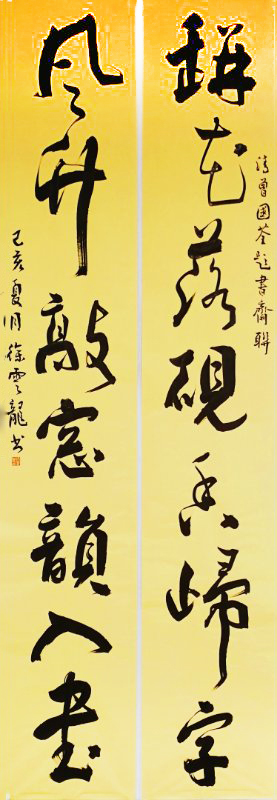 清曾國荃題書齋聯
缾花落硯香歸字
風竹敲窓韻入書
己亥夏月徐雲龍書